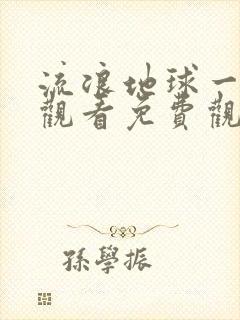 流浪地球一
觀看免費觀
孫學振